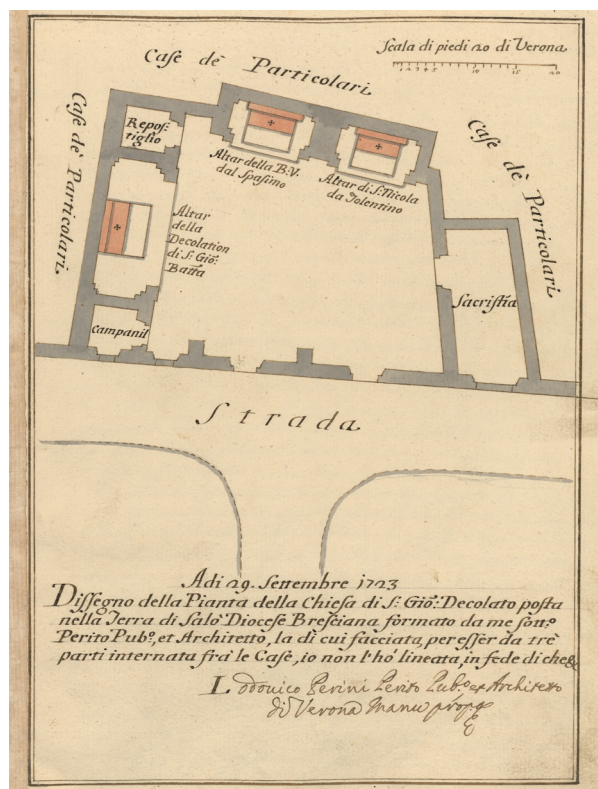 Scala di piedi 20 di Verona
1 2 3 4 5 10 15 20
Case dè Particolari
Case de' Particolari
Case dè Particolari
Repos:
tiglio
Altar della B.V.
dal Spasimo
Altar di S: Nicola
da Tolentino
Altar
della
Decolation
di S: Giõ:
Batta
Sacristia
Campanil
Strada
Adi 29. Settembre 1723
Dissegno della Pianta della Chiesa di S: Giõ: Decolato posta
nella Terra di Salò Diocese Bresciana, formato da me sottº:
Perito Pubº:, et Architetto, la di cui facciata, per esser da trè
parti internata frà le Case, io non l'hò lineata, in fede di che &
Lodouico Perini Perito Pub:º et Architetto
di Verona Manu propª